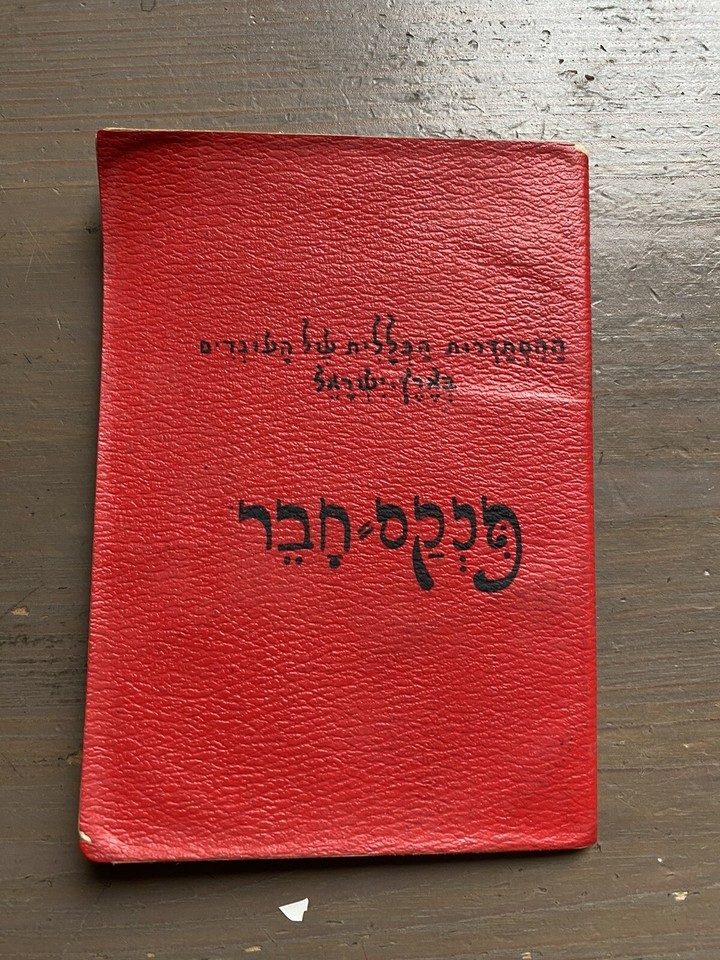 הַהִסְתַּדְרוּת הַכְּלָלִית שֶׁל הָעוֹבְדִים
בְּאֶרֶץ-יִשְׂרָאֵל
פִּנְקַס-חָבֵר